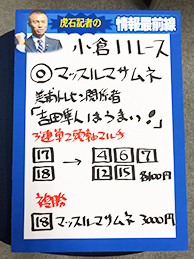 虎石記者の
情報最前線
小倉11レース
◎ マッスルマサムネ
美浦トレセン関係者
「吉田隼人はうまい!」
3連単2頭軸マルチ
17 → 4 6 7
18 12 15 各100円
複勝
18 マッスルマサムネ 3000円